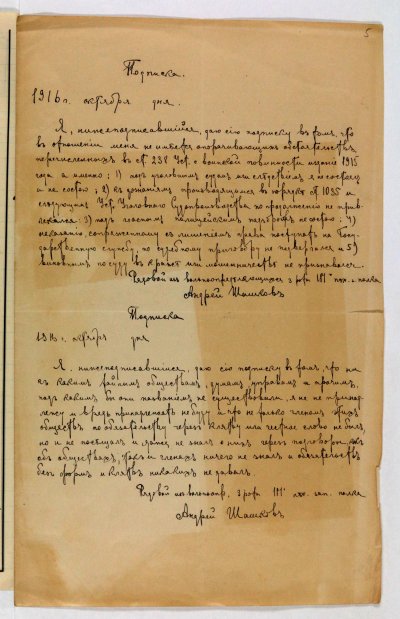 5
Подписка.
1916 г. октября дня.
Я, нижеподписавшийся, даю сію подписку въ томъ, что
въ отношеніи меня не имѣется опорачивающихъ обстоятельствъ
перечисленныхъ въ ст. 238 Уст. о воинской повинности изданіе 1915
года а именно: 1) подъ уголовнымъ судомъ или слѣдствіемъ я не состоялъ
и не состою; 2) къ дознаніямъ производящимся въ порядкѣ ст. 1035 и
слѣдующихъ Уст. Уголовнаго Судопроизводства по продолженію не прив-
лекался. 3) подъ гласнымъ полицейскимъ надзоромъ не состою; 4)
наказанію, сопряженному съ лишеніемъ права поступать на Госу-
дарственную службу, по судебному приговору не подвергался и 5)
виновнымъ по суду въ кражѣ или мошенничествѣ не признавался.
Рядовой изъ вольноопредѣляющихся 3 роты 181 пѣх. полка
Андрей Шашковъ
Подписка
1916 г. октября дня
Я, нижеподписавшійся, даю сію подписку въ томъ, что ни
къ какимъ тайнымъ обществамъ, думамъ, управамъ и прочимъ,
подъ какимъ бы они названіемъ не существовали, я не не принад-
лежу и впредь принадлежать не буду и что не только членомъ этихъ
обществъ по обязательству черезъ клятву или честное слово не былъ,
но и не посѣщалъ и даже не зналъ о нихъ черезъ разговоры,
объ обществахъ, такъ и членахъ ничего не зналъ и обязательствъ
безъ формъ и клятвъ никакихъ не давалъ.
Рядовой изъ вольноопр. 3 роты 181 пѣх. зап. полка
Андрей Шашковъ